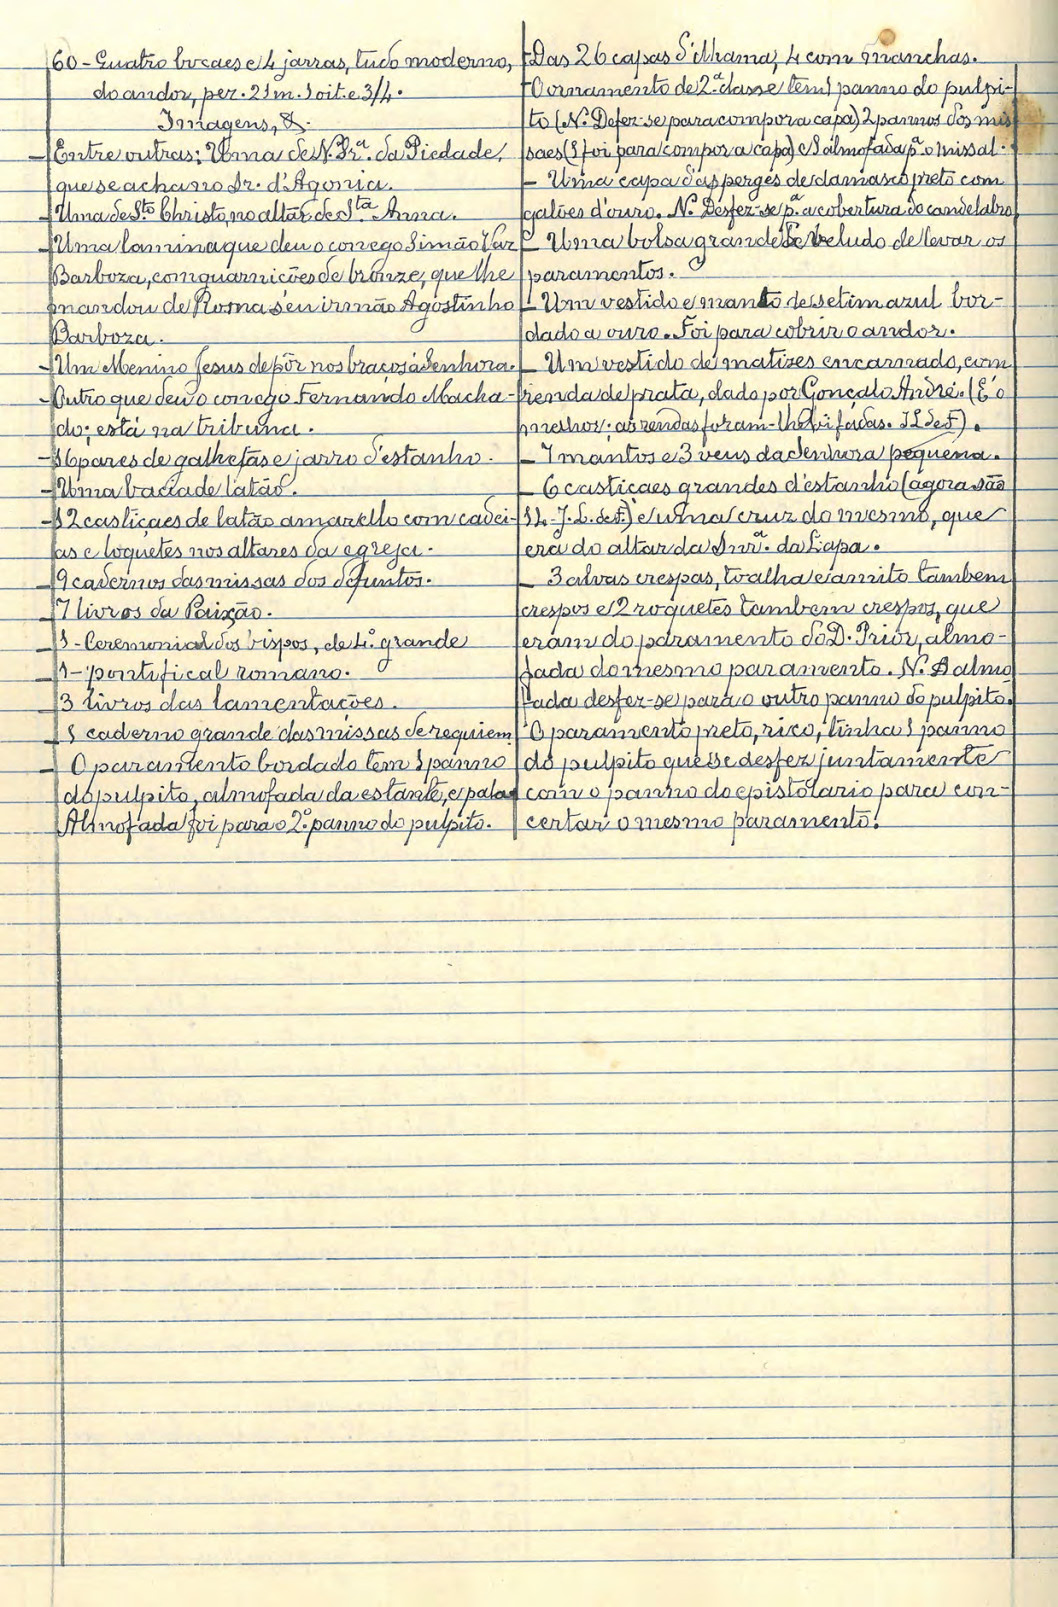 60 - Quatro bocaes e 4 jarras, tudo moderno,
do andor, pez. 21 m. 1 oit. e 3/4.
Imagens, &.
- Entre outras: Uma de N. Sr.ª da Piedade,
que se acha no Sr. d'Agonia.
- Uma de S.to Christo, no altar de S.ta Anna.
- Uma lamina que deu o conego Simão Vaz
Barboza, com guarnições de bronze, que lhe
mandou de Roma seu irmão Agostinho
Barboza.
- Um Menino Jesus de pôr nos braços á Senhora.
- Outro que deu o conego Fernando Macha-
do; está na tribuna.
- 16 pares de galhetas e jarro d'estanho.
- Uma bacia de latão.
- 12 castiçaes de latão amarello com cadei-
as e loquetes nos altares da egreja.
- 9 cadernos das missas dos defuntos.
- 7 livros da Paixão.
- 1 - Ceremonial dos bispos, de 4.º grande
- 1 - pontifical romano.
- 3 livros das lamentações.
- 1 caderno grande das missas de requiem
- O paramento bordado tem 1 panno
do pulpito, almofada da estante, e pala.
Almofada foi para o 2.º panno do pulpito.
- Das 26 capas d'ilhama, 4 com manchas.
- O ornamento de 2.ª classe tem 1 panno do pulpi-
to (N. Desfez-se para compor a capa) 2 pannos dos mis
saes (1 foi para compor a capa) e 1 almofada p.ª o missal.
- Uma capa d'asperges de damasco preto com
galões d'ouro. N. Desfez-se p.ª a cobertura do candelabro
- Uma bolsa grande de veludo de levar os
paramentos.
- Um vestido e manto de setim azul bor-
dado a ouro. Foi para cobrir o andor.
- Um vestido de matizes encarnado, com
renda de prata, dado por Gonçalo André. (É o
melhor; as rendas foram-lhe J. L. de F).
- 7 mantos e 3 veus da Senhora pequena.
- 6 castiçaes grandes d'estanho (agora são
14 - J. L. de F.) e uma cruz do mesmo, que
era do altar da Snr.ª da Lapa.
- 3 alvas crespas, toalha e amito tambem
crespos e 2 roquetes tambem crespos, que
eram do paramento do D. Prior, almo-
fada do mesmo paramento. N. A almo
fada desfez-se para o outro panno do pulpito.
O paramento preto, rico, tinha 1 panno
do pulpito que se desfez juntamente
com o panno do epistolario para con-
certar o mesmo paramento.